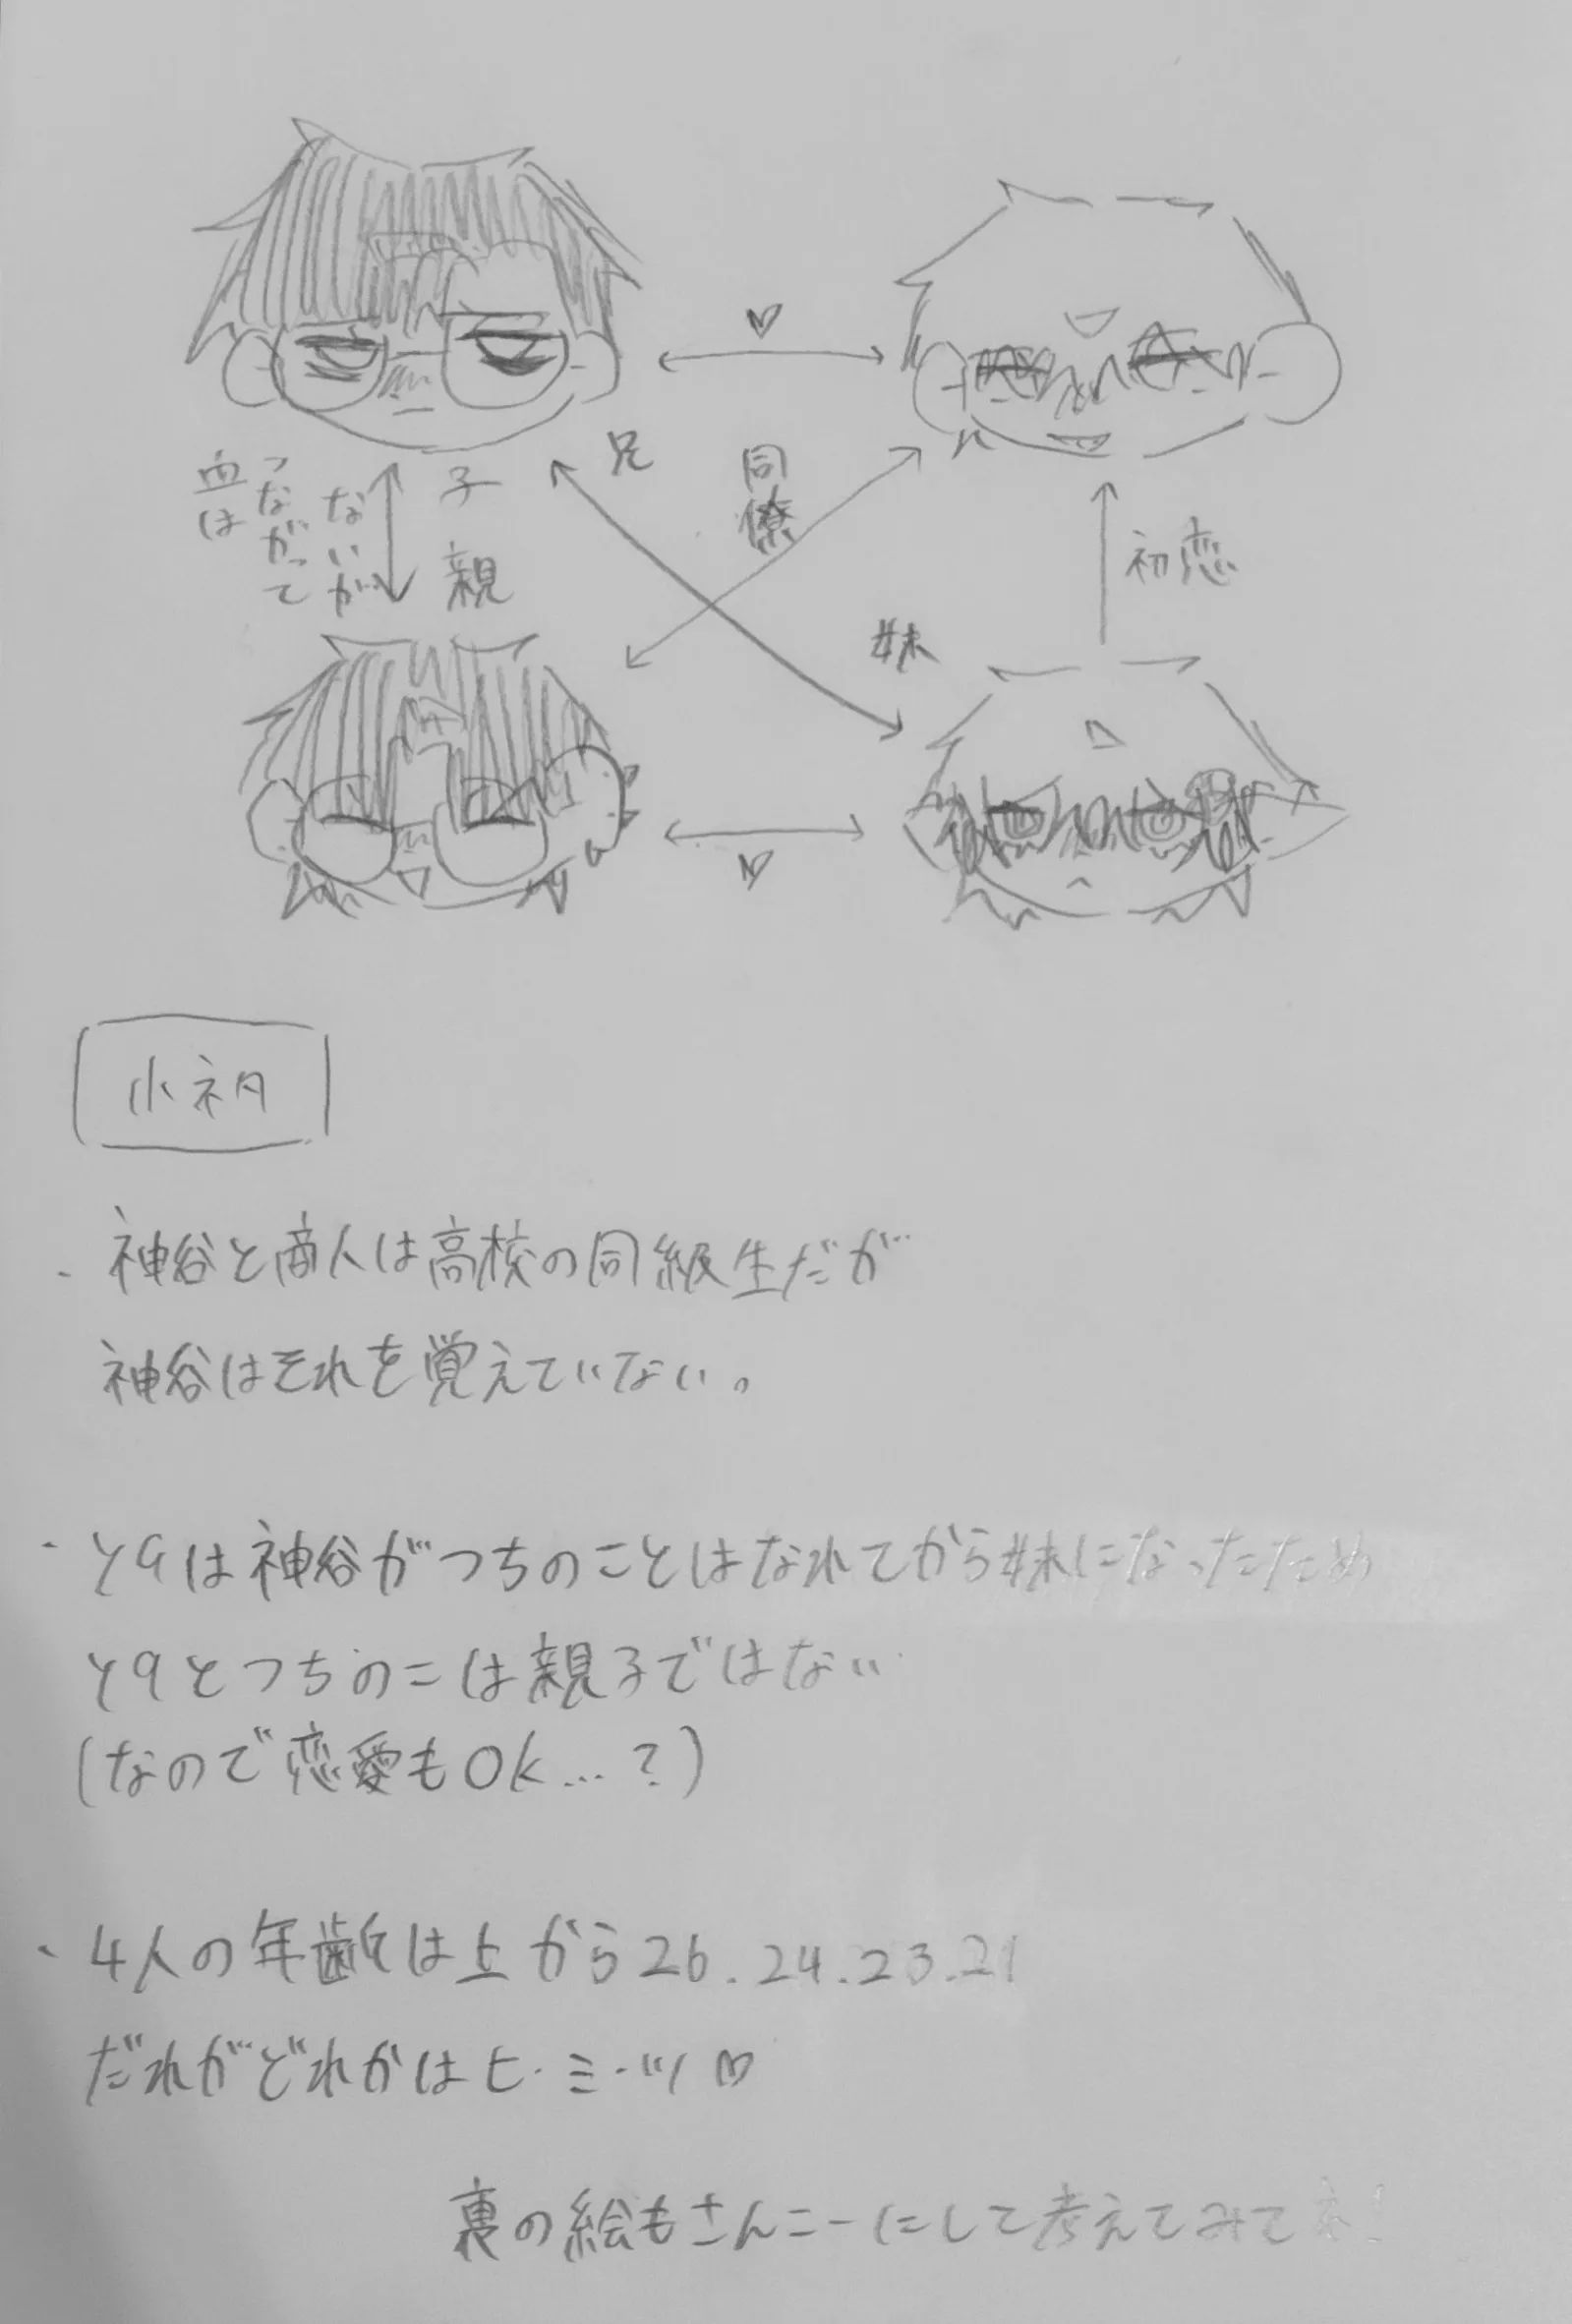 ♡
兄
同僚
血は
つながって
ないが
子
親
初恋
妹
♡
小ネタ
・神谷と商人は高校の同級生だが
神谷はそれを覚えていない。
・と9は神谷がつちのことはなれてから妹になったため
と9とつちのこは親子ではない
(なので恋愛もOK…?)
・4人の年齢は上から26.24.23.21
だれがどれかはヒ・ミ・ツ♡
裏の絵もさんこーにして考えてみてネ!